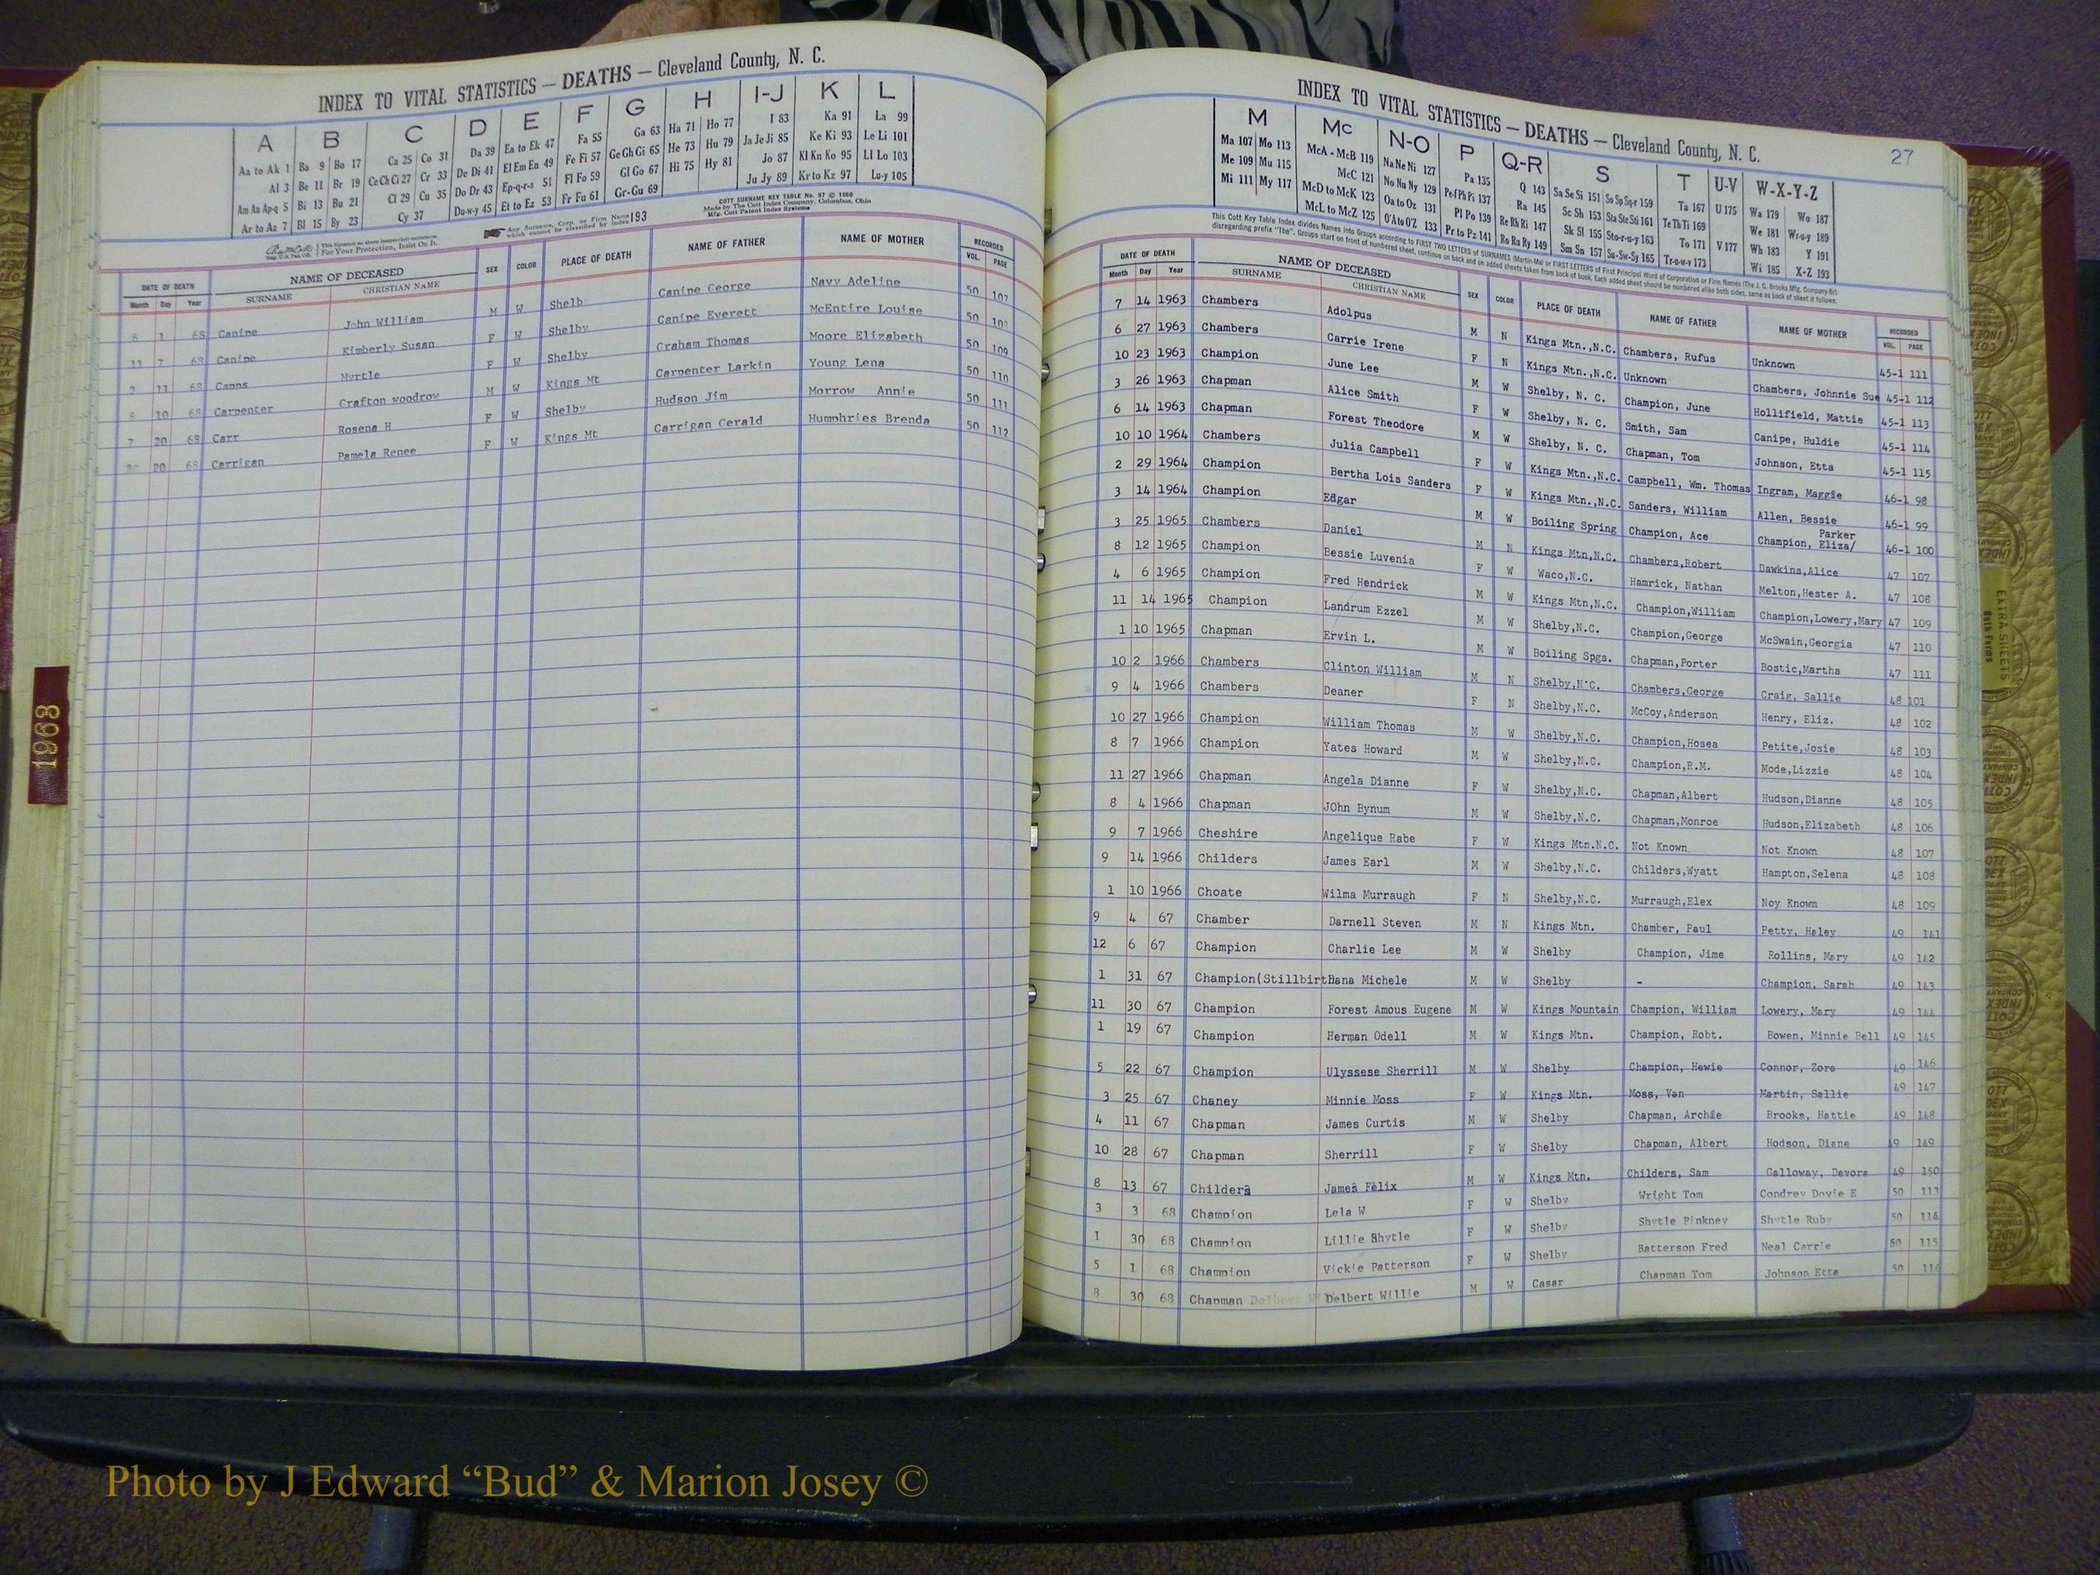 INDEX TO VITAL STATISTICS — DEATHS — Cleveland County, N. C.
A B C D E F G H I-J K L
Aa to Ak 1 Ba 9 Bo 17 Ca 25 Co 31 Da 39 Ea to Ek 47 Fa 55 Ga 63 Ha 71 Ho 77 I 83 Ka 91 La 99
Al 3 Be 11 Br 19 Ce Ch Ci 27 Cr 33 De Di 41 El Em En 49 Fe Fi 57 Ge Gh Gi 65 He 73 Hu 79 Ja Je Ji 85 Ke Ki 93 Le Li 101
Am An Ap-q 5 Bi 13 Bu 21 Cl 29 Cu 35 Do Dr 43 Ep-q-r-s 51 Fl Fo 59 Gl Go 67 Hi 75 Hy 81 Jo 87 Kl Kn Ko 95 Ll Lo 103
Ar to Az 7 Bl 15 By 23 Cy 37 Du-w-y 45 Et to Ez 53 Fr Fu 61 Gr-Gu 69 Ju Jy 89 Kr to Kz 97 Lu-y 105
COTT SURNAME KEY TABLE No. 97 © 1960
Made by The Cott Index Company, Columbus, Ohio
Mfg. Cott Patent Index Systems
For Your Protection, Insist On It.
Any Surname, Corp. or Firm Name which cannot be classified by index 193
DATE OF DEATH NAME OF DECEASED SEX COLOR PLACE OF DEATH NAME OF FATHER NAME OF MOTHER RECORDED
Month Day Year SURNAME CHRISTIAN NAME VOL. PAGE
6 1 68 Canipe John William M W Shelb Canipe George Navy Adeline 50 107
11 7 68 Canipe Kimberly Susan F W Shelby Canipe Everett McEntire Louise 50 108
2 11 68 Capps Myrtle F W Shelby Graham Thomas Moore Elizabeth 50 109
8 10 68 Carpenter Grafton woodrow M W Kings Mt Carpenter Larkin Young Lena 50 110
7 20 68 Carr Rosena H F W Shelby Hudson Jim Morrow Annie 50 111
20 68 Carrigan Pamela Renee F W Kings Mt Carrigan Gerald Humphries Brenda 50 112
1968
INDEX TO VITAL STATISTICS — DEATHS — Cleveland County, N. C.
27
M Mc N-O P Q-R S T U-V W-X-Y-Z
Ma 107 Mo 113 McA - McB 119 Na Ne Ni 127 Pa 135 Q 143 Sa Se Si 151 So Sp Sq-r 159 Ta 167 U 175 Wa 179 Wo 187
Me 109 Mu 115 McC 121 No Nu Ny 129 Pe Pf Ph Pi 137 Ra 145 Sc Sh 153 Sta Ste Sti 161 Te Th Ti 169 We 181 Wr-u-y 189
Mi 111 My 117 McD to McK 123 Oa to Oz 131 Pl Po 139 Re Rh Ri 147 Sk Sl 155 Sto-r-u-y 163 To 171 V 177 Wh 183 Y 191
McL to McZ 125 O'A to O'Z 133 Pr to Pz 141 Ro Ru Ry 149 Sm Sn 157 Su-Sw-Sy 165 Tr-u-w-y 173 Wi 185 X-Z 193
This Cott Key Table Index divides Names into Groups according to FIRST TWO LETTERS of SURNAMES (Martin-Ma) or FIRST LETTERS of First Principal Word of Corporation or Firm Names (The J. C. Brooks Mfg. Company-Br)
disregarding prefix "The". Groups start on front of numbered sheet, continue on back and on added sheets taken from back of book. Each added sheet should be numbered alike both sides, same as back of sheet it follows.
DATE OF DEATH NAME OF DECEASED SEX COLOR PLACE OF DEATH NAME OF FATHER NAME OF MOTHER RECORDED
Month Day Year SURNAME CHRISTIAN NAME VOL. PAGE
7 14 1963 Chambers Adolpus M N Kings Mtn.,N.C. Chambers, Rufus Unknown 45-1 111
6 27 1963 Chambers Carrie Irene F N Kings Mtn.,N.C. Unknown Chambers, Johnnie Sue 45-1 112
10 23 1963 Champion June Lee M W Shelby, N. C. Champion, June Hollifield, Mattie 45-1 113
3 26 1963 Chapman Alice Smith F W Shelby, N. C. Smith, Sam Canipe, Huldie 45-1 114
6 14 1963 Chapman Forest Theodore M W Shelby, N. C. Chapman, Tom Johnson, Etta 45-1 115
10 10 1964 Chambers Julia Campbell F W Kings Mtn.,N.C. Campbell, Wm. Thomas Ingram, Maggie 46-1 98
2 29 1964 Champion Bertha Lois Sanders F W Kings Mtn.,N.C. Sanders, William Allen, Bessie 46-1 99
3 14 1964 Champion Edgar M W Boiling Spring Champion, Ace Champion, Eliza/ Parker 46-1 100
3 25 1965 Chambers Daniel M N Kings Mtn,N.C. Chambers,Robert Dawkins,Alice 47 107
8 12 1965 Champion Bessie Luvenia F W Waco,N.C. Hamrick, Nathan Melton,Hester A. 47 108
4 6 1965 Champion Fred Hendrick M W Kings Mtn,N.C. Champion,William Champion,Lowery,Mary 47 109
11 14 1965 Champion Landrum Ezzel M W Shelby,N.C. Champion,George McSwain,Georgia 47 110
1 10 1965 Chapman Ervin L. M W Boiling Spgs. Chapman,Porter Bostic,Martha 47 111
10 2 1966 Chambers Clinton William M N Shelby,N.C. Chambers,George Craig, Sallie 48 101
9 4 1966 Chambers Deaner F N Shelby,N.C. McCoy,Anderson Henry, Eliz. 48 102
10 27 1966 Champion William Thomas M W Shelby,N.C. Champion,Hosea Petite,Josie 48 103
8 7 1966 Champion Yates Howard M W Shelby,N.C. Champion,R.M. Mode,Lizzie 48 104
11 27 1966 Chapman Angela Dianne F W Shelby,N.C. Chapman,Albert Hudson,Dianne 48 105
8 4 1966 Chapman JOhn Bynum M W Shelby,N.C. Chapman,Monroe Hudson,Elizabeth 48 106
9 7 1966 Cheshire Angelique Rabe F W Kings Mtn.N.C. Not Known Not Known 48 107
9 14 1966 Childers James Earl M W Shelby,N.C. Childers,Wyatt Hampton,Selena 48 108
1 10 1966 Choate Wilma Murraugh F N Shelby,N.C. Murraugh,Elex Noy Known 48 109
9 4 67 Chamber Darnell Steven M N Kings Mtn. Chamber, Paul Petty, Haley 49 141
12 6 67 Champion Charlie Lee M W Shelby Champion, Jime Rollins, Mary 49 142
1 31 67 Champion(Stillbirt Dana Michele M W Shelby - Champion, Sarah 49 143
11 30 67 Champion Forest Amous Eugene M W Kings Mountain Champion, William Lowery, Mary 49 144
1 19 67 Champion Herman Odell M W Kings Mtn. Champion, Robt. Bowen, Minnie Bell 49 145
5 22 67 Champion Ulyssese Sherrill M W Shelby Champion, Hewie Connor, Zore 49 146
3 25 67 Chaney Minnie Moss F W Kings Mtn. Moss, Van Martin, Sallie 49 147
4 11 67 Chapman James Curtis M W Shelby Chapman, Archie Brooks, Hattie 49 148
10 28 67 Chapman Sherrill F W Shelby Chapman, Albert Hodson, Diane 49 149
8 13 67 Childers James Felix M W Kings Mtn. Childers, Sam Galloway, Devora 49 150
3 3 68 Champion Lela W F W Shelby Wright Tom Condrey Dovie E 50 113
1 30 68 Champion Lillie Shytle F W Shelby Shytle Pinkney Shytle Ruby 50 114
5 1 68 Champion Vickie Patterson F W Shelby Batterson Fred Neal Carrie 50 115
8 30 68 Chapman Delbert Willie M W Casar Chapman Tom Johnson Etta 50 116
EXTRA SHEETS
Photo by J Edward “Bud” & Marion Josey ©